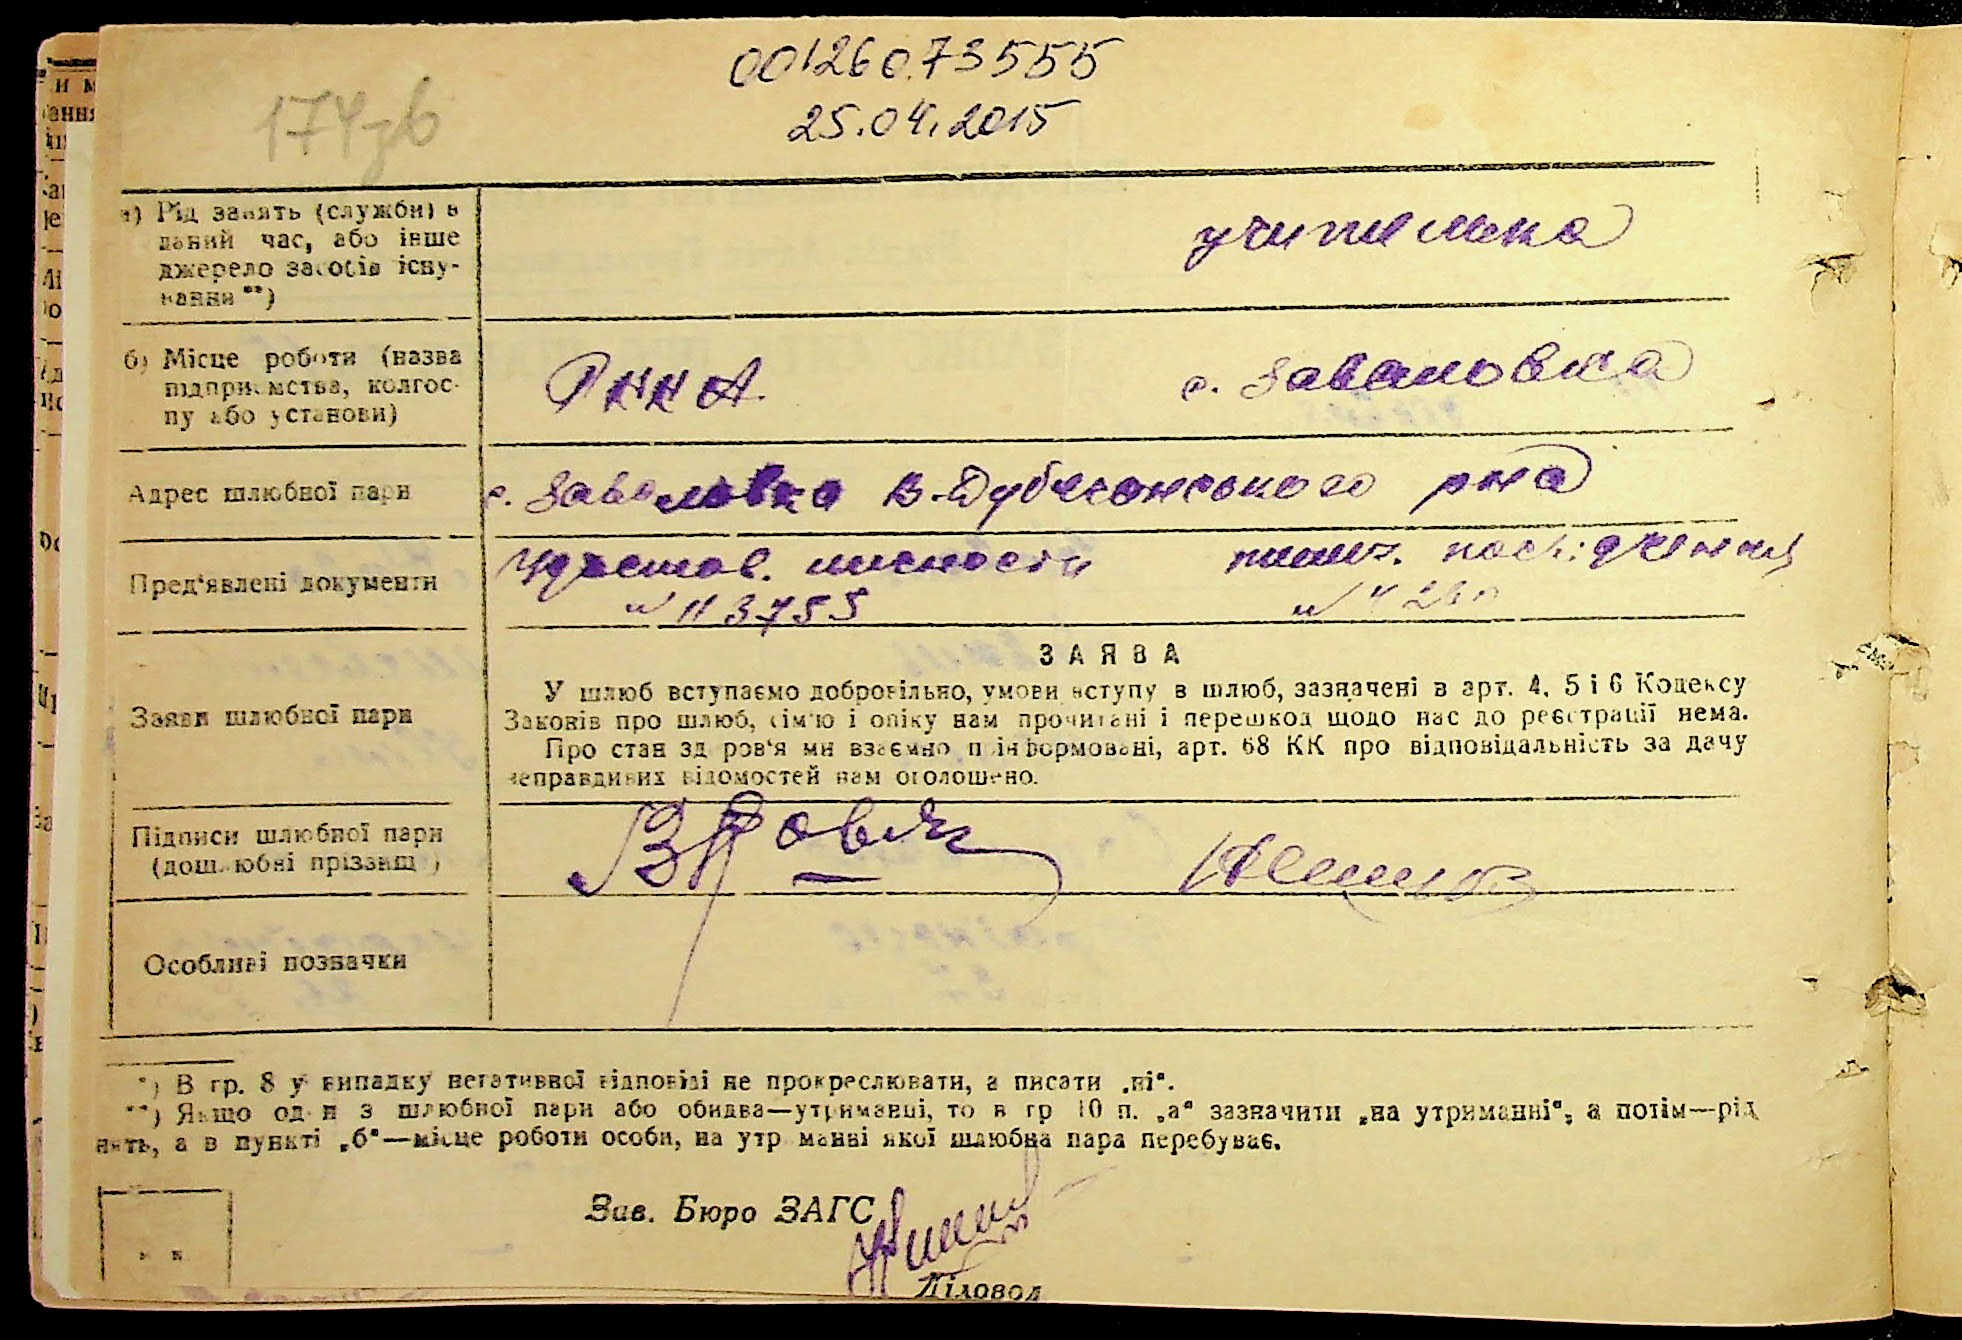 00126073555
25.04.2015
174зв
а) Рід занять (служби) в
даний час, або інше
джерело засобів існу-
вання**)
учителька
б) Місце роботи (назва
підприємства, колгос-
пу або установи)
РККА.
с. Заваловка
Адрес шлюбної пари
с. Заваловка В-Дубечанського рна
Пред'явлені документи
Удостов. личности
№ 113755
посвідчення
№
ЗАЯВА
Заяви шлюбної пари
У шлюб вступаємо добровільно, умови вступу в шлюб, зазначені в арт. 4, 5 і 6 Кодексу
Законів про шлюб, сім'ю і опіку нам прочитані і перешкод щодо нас до реєстрації нема.
Про стан здоров'я ми взаємно поінформовані, арт. 68 КК про відповідальність за дачу
неправдивих відомостей нам оголошено.
Підписи шлюбної пари
(дошлюбні прізвища)
Особливі позначки
*) В гр. 8 у випадку негативної відповіді не прокреслювати, а писати „ні“.
**) Якщо один з шлюбної пари або обидва—утриманці, то в гр 10 п. „а“ зазначити „на утриманні“, а потім—рід
нять, а в пункті „б“—місце роботи особи, на утриманні якої шлюбна пара перебуває.
Зав. Бюро ЗАГС
Діловод